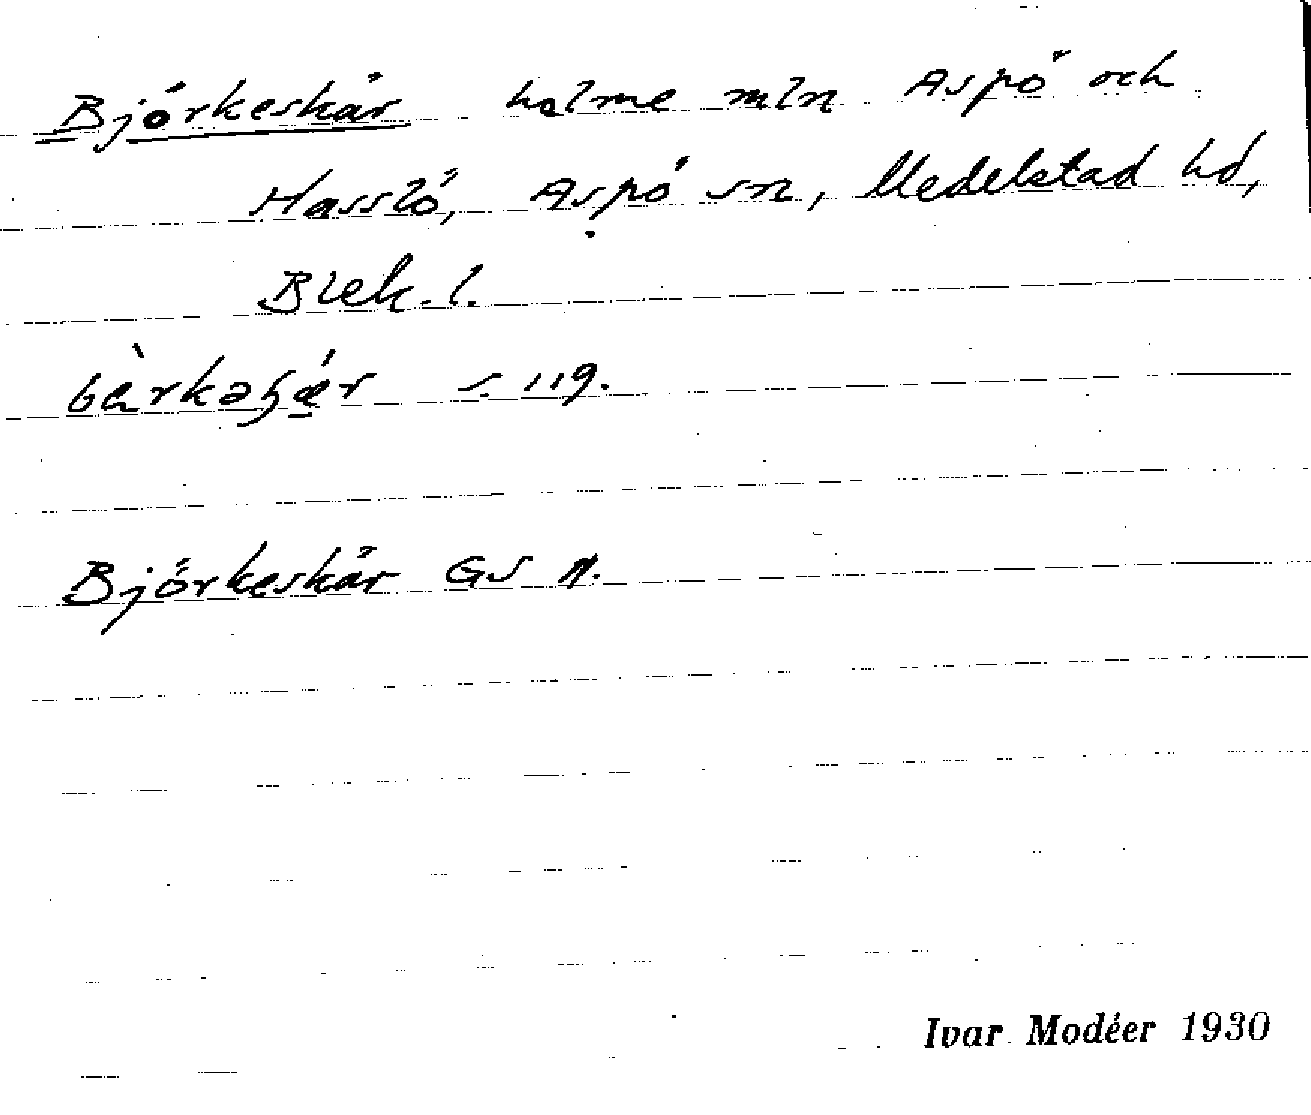 Björkeskär holme mln Aspö och
Hasslö, Aspö sn, Medelstad hd,
Blek. l.
s. 119.
Björkeskär GS
Ivar Modéer 1930